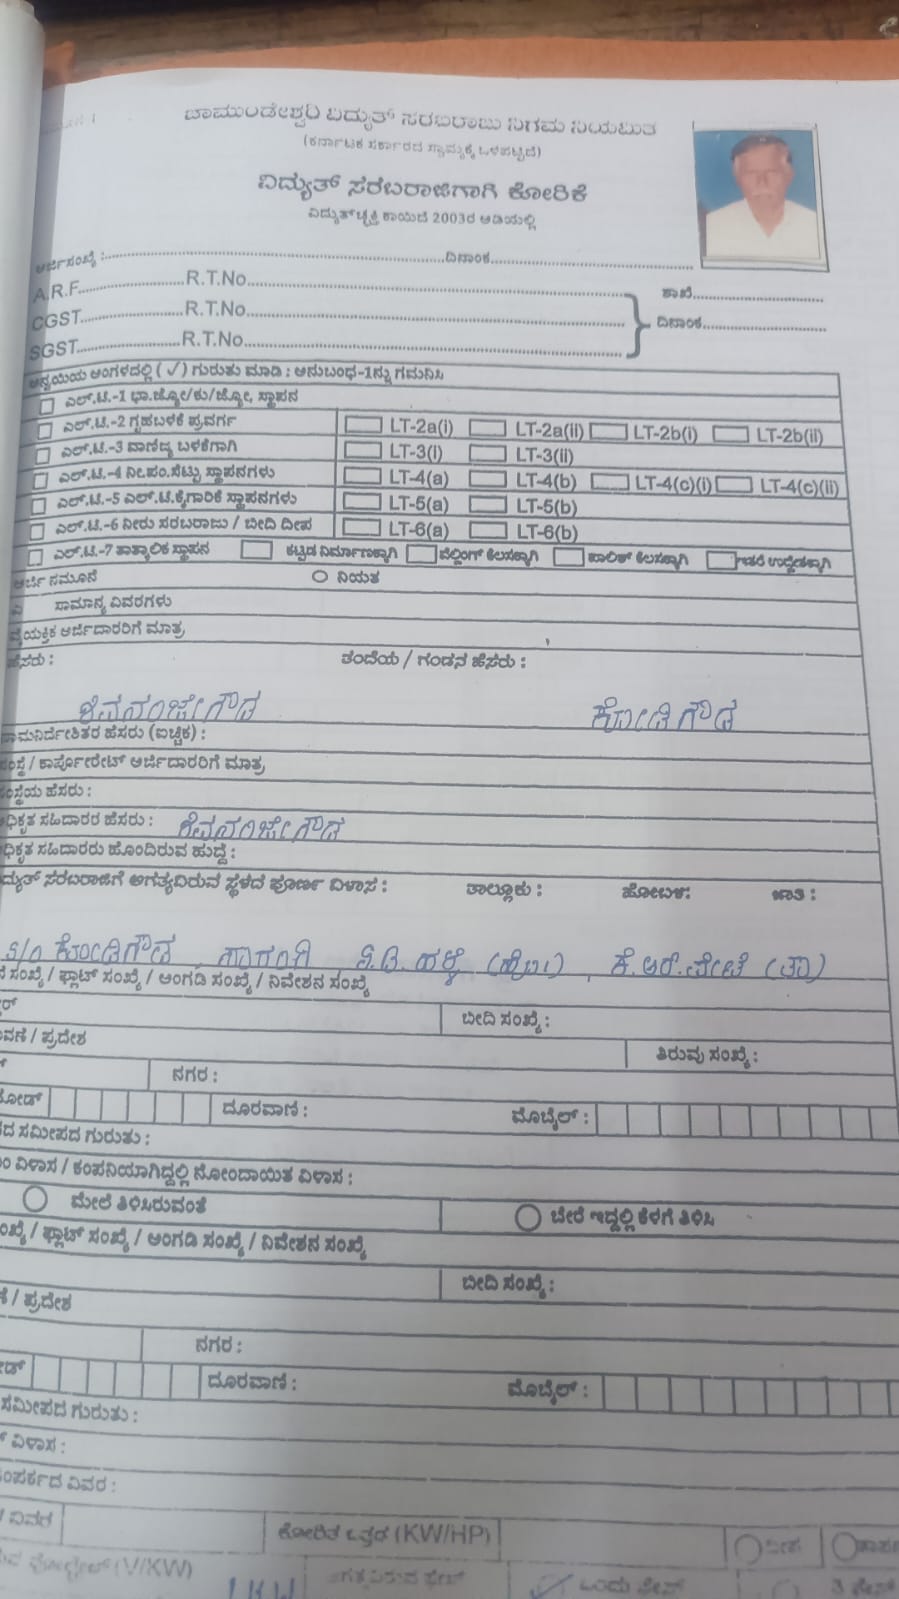 ಚಾಮುಂಡೇಶ್ವರಿ ವಿದ್ಯುತ್ ಸರಬರಾಜು ನಿಗಮ ನಿಯಮಿತ
(ಕರ್ನಾಟಕ ಸರ್ಕಾರದ ಸ್ವಾಮ್ಯಕ್ಕೆ ಒಳಪಟ್ಟಿದೆ)
ವಿದ್ಯುತ್ ಸರಬರಾಜಿಗಾಗಿ ಕೋರಿಕೆ
ವಿದ್ಯುತ್‌ಚ್ಛಕ್ತಿ ಕಾಯಿದೆ 2003ರ ಅಡಿಯಲ್ಲಿ
ಅರ್ಜಿಸಂಖ್ಯೆ : ದಿನಾಂಕ
A.R.F. R.T.No ಶಾಖೆ
CGST R.T.No ದಿನಾಂಕ
SGST R.T.No
ಅನ್ವಯಿಯ ಅಂಗಳದಲ್ಲಿ (✓) ಗುರುತು ಮಾಡಿ : ಅನುಬಂಧ-1ನ್ನು ಗಮನಿಸಿ
ಎಲ್.ಟಿ.-1 ಭಾ.ಜ್ಯೋ/ಕು/ಜ್ಯೋ, ಸ್ಥಾಪನ
ಎಲ್.ಟಿ.-2 ಗೃಹಬಳಕೆ ಪ್ರವರ್ಗ LT-2a(i) LT-2a(ii) LT-2b(i) LT-2b(ii)
ಎಲ್.ಟಿ.-3 ವಾಣಿಜ್ಯ ಬಳಕೆಗಾಗಿ LT-3(i) LT-3(ii)
ಎಲ್.ಟಿ.-4 ನೀ.ಪಂ.ಸೆಟ್ಟು ಸ್ಥಾಪನಗಳು LT-4(a) LT-4(b) LT-4(c)(i) LT-4(c)(ii)
ಎಲ್.ಟಿ.-5 ಎಲ್.ಟಿ.ಕೈಗಾರಿಕೆ ಸ್ಥಾಪನಗಳು LT-5(a) LT-5(b)
ಎಲ್.ಟಿ.-6 ನೀರು ಸರಬರಾಜು / ಬೀದಿ ದೀಪ LT-6(a) LT-6(b)
ಎಲ್.ಟಿ.-7 ತಾತ್ಕಾಲಿಕ ಸ್ಥಾಪನ ಕಟ್ಟಡ ನಿರ್ಮಾಣಕ್ಕಾಗಿ ವೆಲ್ಡಿಂಗ್ ಕೆಲಸಕ್ಕಾಗಿ ಪಾಲಿಶ್ ಕೆಲಸಕ್ಕಾಗಿ ಇತರೆ ಉದ್ದೇಶಕ್ಕಾಗಿ
ಅರ್ಜಿ ನಮೂನೆ ನಿಯತ
ಎ ಸಾಮಾನ್ಯ ವಿವರಗಳು
ವೈಯಕ್ತಿಕ ಅರ್ಜಿದಾರರಿಗೆ ಮಾತ್ರ
ಹೆಸರು : ತಂದೆಯ / ಗಂಡನ ಹೆಸರು :
ಶಿವನಂಜೇಗೌಡ ಕೋಡಿಗೌಡ
ನಾಮನಿರ್ದೇಶಿತರ ಹೆಸರು (ಐಚ್ಛಿಕ) :
ಸಂಸ್ಥೆ / ಕಾರ್ಪೋರೇಟ್ ಅರ್ಜಿದಾರರಿಗೆ ಮಾತ್ರ
ಸಂಸ್ಥೆಯ ಹೆಸರು :
ಅಧಿಕೃತ ಸಹಿದಾರರ ಹೆಸರು : ಶಿವನಂಜೇಗೌಡ
ಅಧಿಕೃತ ಸಹಿದಾರರು ಹೊಂದಿರುವ ಹುದ್ದೆ :
ವಿದ್ಯುತ್ ಸರಬರಾಜಿಗೆ ಅಗತ್ಯವಿರುವ ಸ್ಥಳದ ಪೂರ್ಣ ವಿಳಾಸ : ತಾಲ್ಲೂಕು : ಹೋಬಳಿ: ಜಾತಿ :
S/o ಕೋಡಿಗೌಡ ಸಾರಂಗಿ ಕೆ.ಆರ್.ಪೇಟೆ (ತಾ)
ಸಂಖ್ಯೆ / ಫ್ಲಾಟ್ ಸಂಖ್ಯೆ / ಅಂಗಡಿ ಸಂಖ್ಯೆ / ನಿವೇಶನ ಸಂಖ್ಯೆ
ಬೀದಿ ಸಂಖ್ಯೆ :
/ ಪ್ರದೇಶ ತಿರುವು ಸಂಖ್ಯೆ :
ನಗರ :
ಕೋಡ್ ದೂರವಾಣಿ : ಮೊಬೈಲ್ :
ಸಮೀಪದ ಗುರುತು :
ವಿಳಾಸ / ಕಂಪನಿಯಾಗಿದ್ದಲ್ಲಿ ನೋಂದಾಯಿತ ವಿಳಾಸ :
ಮೇಲೆ ತಿಳಿಸಿರುವಂತೆ ಬೇರೆ ಇದ್ದಲ್ಲಿ ಕೆಳಗೆ ತಿಳಿಸಿ
ಸಂಖ್ಯೆ / ಫ್ಲಾಟ್ ಸಂಖ್ಯೆ / ಅಂಗಡಿ ಸಂಖ್ಯೆ / ನಿವೇಶನ ಸಂಖ್ಯೆ
ಬೀದಿ ಸಂಖ್ಯೆ :
/ ಪ್ರದೇಶ
ನಗರ :
ದೂರವಾಣಿ : ಮೊಬೈಲ್ :
ಸಮೀಪದ ಗುರುತು :
ವಿಳಾಸ :
ಸಂಪರ್ಕದ ವಿವರ :
ವಿವರ ಕೋರಿತ ಒತ್ತಡ (KW/HP)
(V/KW) ಒಂದು ಫೇಸ್ 3 ಫೇಸ್